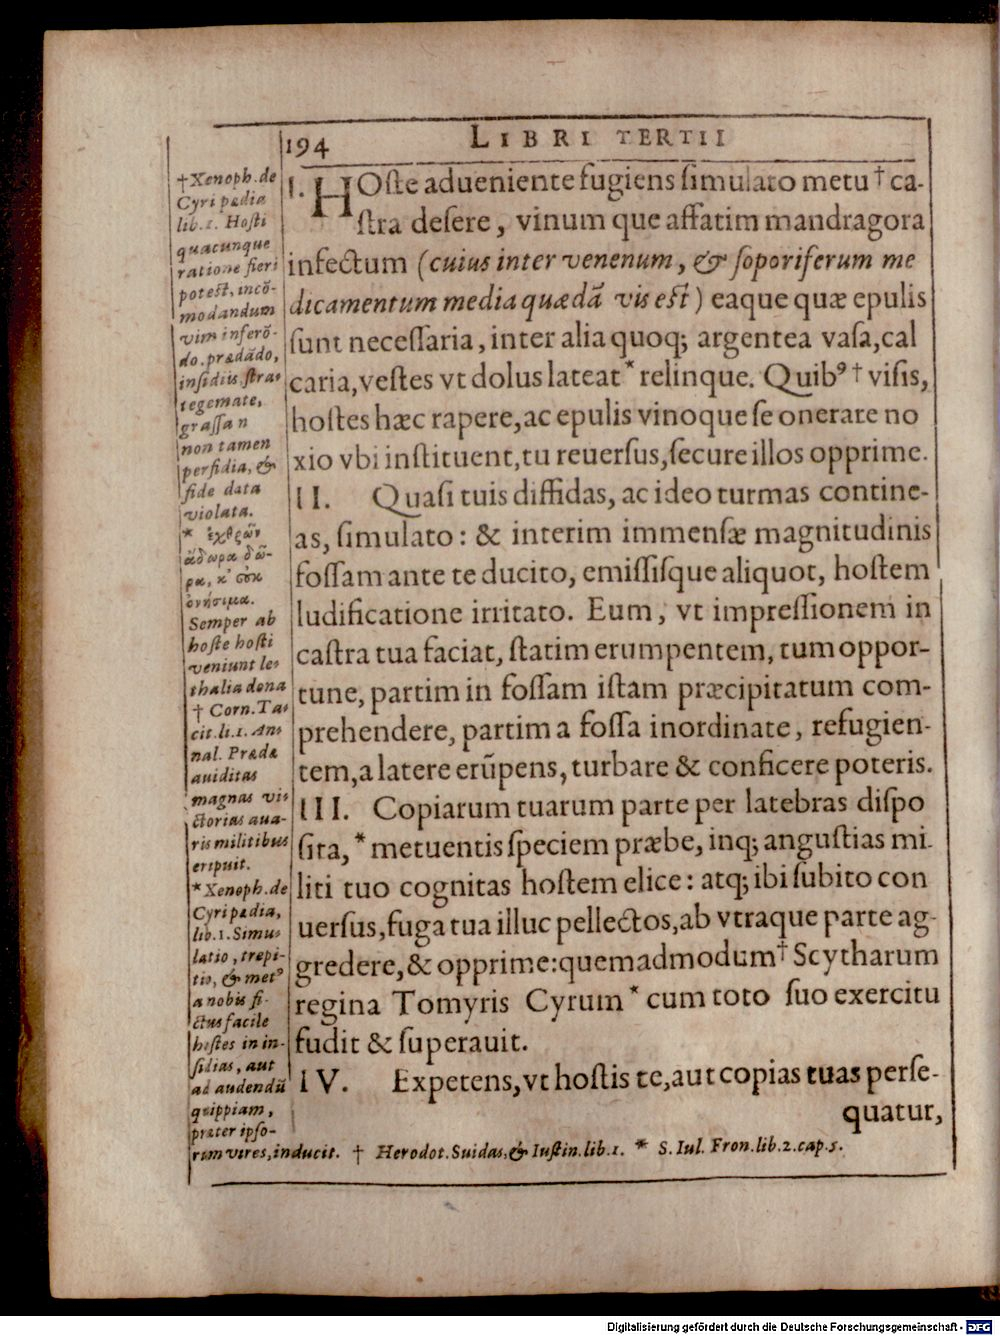 194 LIBRI TERTII
I. HOſte adueniente fugiens ſimulato metu † ca-
ſtra deſere, vinum que affatim mandragora
infectum (cuius inter venenum, & ſoporiferum me
dicamentum media quædā vis est) eaque quæ epulis
ſunt neceſſaria, inter alia quoq; argentea vaſa, cal
caria, veſtes vt dolus lateat * relinque. Quibꝰ † viſis,
hoſtes hæc rapere, ac epulis vinoque ſe onerare no
xio vbi inſtituent, tu reuerſus, ſecure illos opprime.
II. Quaſi tuis diffidas, ac ideo turmas contine-
as, ſimulato: & interim immenſæ magnitudinis
foſſam ante te ducito, emiſſiſque aliquot, hoſtem
ludificatione irritato. Eum, vt impreſſionem in
caſtra tua faciat, ſtatim erumpentem, tum oppor-
tune, partim in foſſam iſtam præcipitatum com-
prehendere, partim a foſſa inordinate, refugien-
tem, a latere erūpens, turbare & conficere poteris.
III. Copiarum tuarum parte per latebras diſpo
ſita, * metuentis ſpeciem præbe, inq; anguſtias mi-
liti tuo cognitas hoſtem elice: atq; ibi ſubito con
uerſus, fuga tua illuc pellectos, ab vtraque parte ag-
gredere, & opprime: quemadmodum † Scytharum
regina Tomyris Cyrum * cum toto ſuo exercitu
fudit & ſuperauit.
IV. Expetens, vt hoſtis te, aut copias tuas perſe-
quatur,
† Xenoph. de
Cyri pædia
lib. 1. Hoſti
quacunque
ratione fieri
poteſt, incō-
modandum
vim inferō-
do. prædādo,
inſidiis. ſtra-
tegemate,
graſſan
non tamen
perfidia, &
fide data
violata.
* ἐχθρῶν
ἄδωρα δῶ-
ρα, κ' οὐκ
ὀνήσιμα.
Semper ab
hoſte hoſti
veniunt le-
thalia dona
† Corn. Ta-
cit. li. 1. An-
nal. Prædæ
auiditas
magnas vi-
ctorias aua-
ris militibus
eripuit.
* Xenoph. de
Cyri pædia,
lib. 1. Simu-
latio, trepi-
tio, & metꝰ
a nobis fi-
ctus facile
hoſtes in in-
ſidias, aut
ad audendū
quippiam,
præter ipſo-
rum vires, inducit. † Herodot. Suidas, & Iuſtin. lib. 1. * S. Iul. Fron. lib. 2. cap. 5.
Digitalisierung gefördert durch die Deutsche Forschungsgemeinschaft - DFG